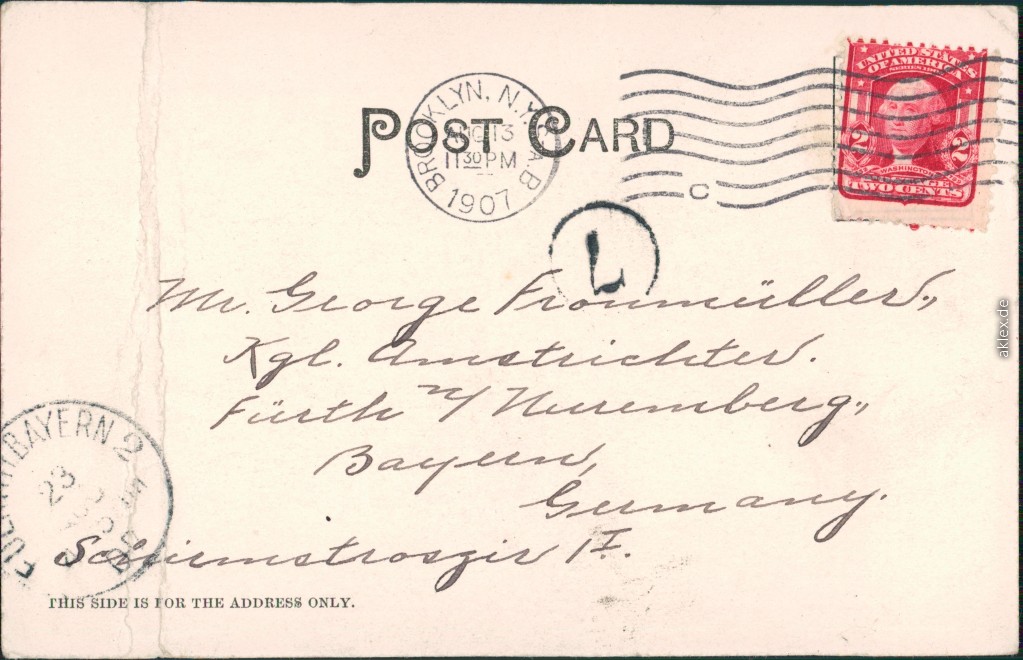 POST CARD
BROOKLYN, N.Y. STA. B
AUG 13
11 30 PM
1907
C
UNITED STATES
OF AMERICA
SERIES 1902
2 2
WASHINGTON
TWO CENTS
L
Mr. George Fronmüller.,
Kgl. Amstrichter.
Fürth n/ Nuremberg.,
Bayern,
Germany.
I.
FUERTH BAYERN 2
23
THIS SIDE IS FOR THE ADDRESS ONLY.
aklex.de